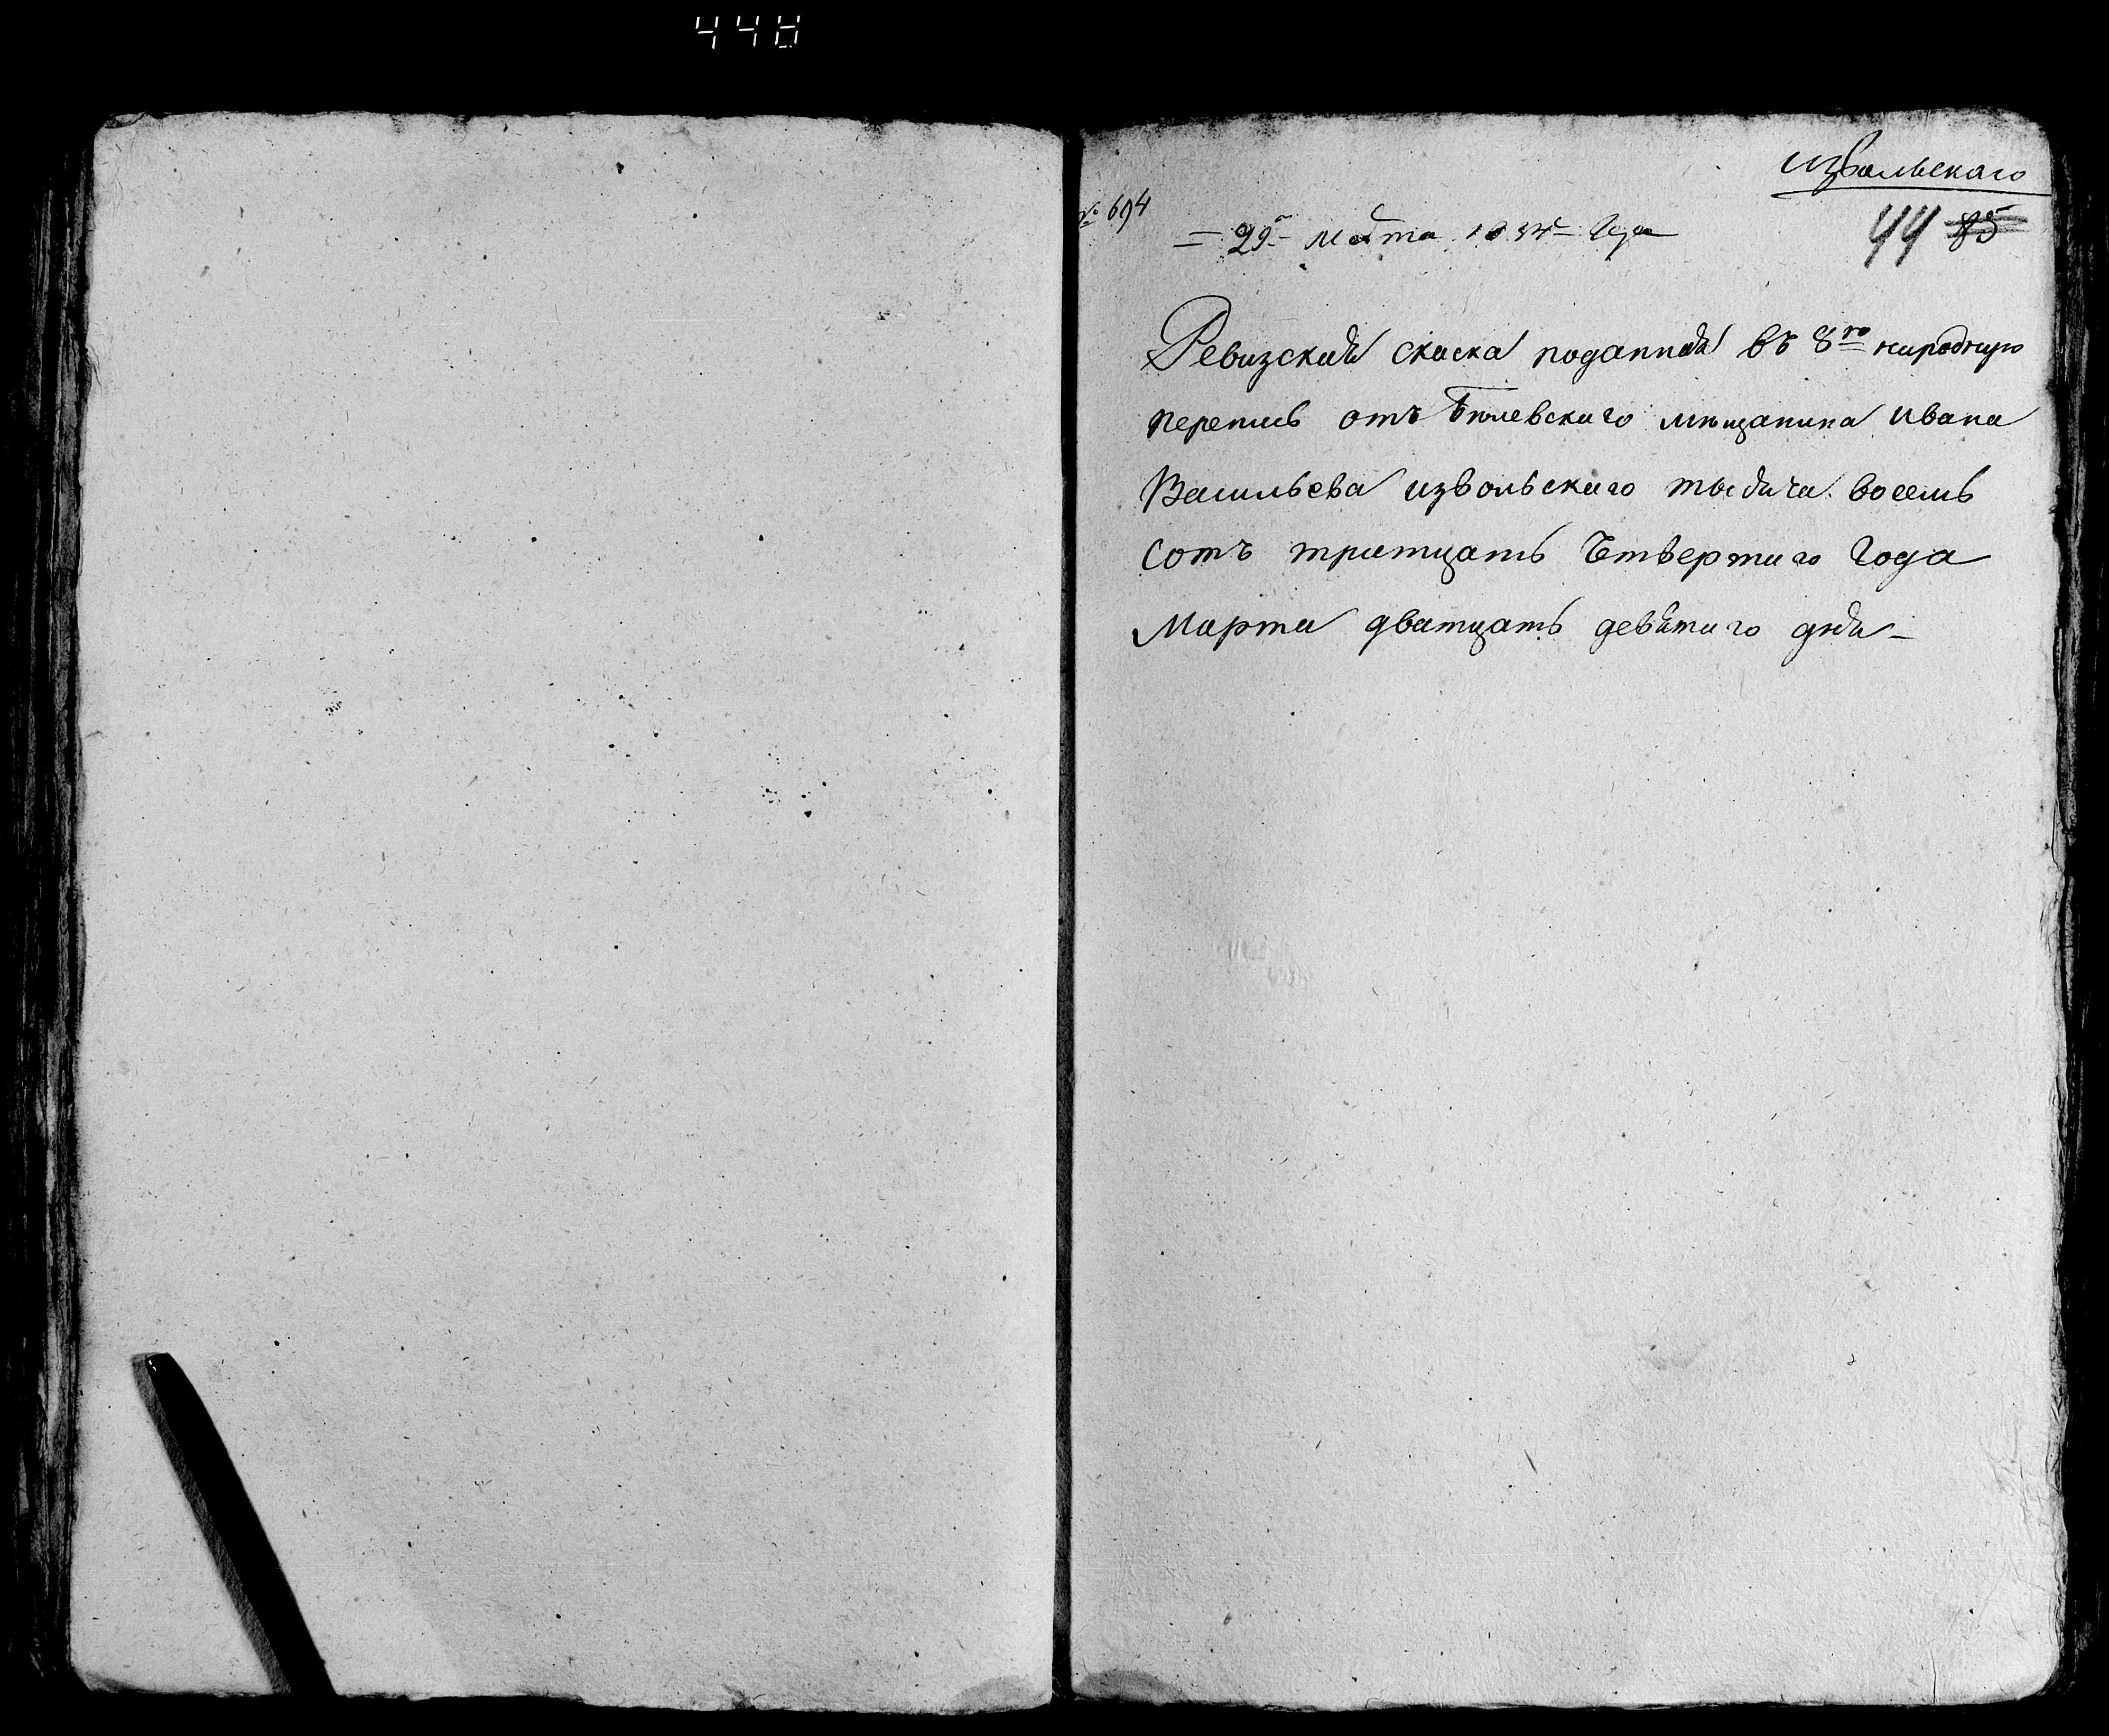 448
извольскаго
№ 694
= 29го марта 1834го года
44 85
Ревизская скаска поданная въ 8ю народную
перепись отъ Белевскаго мещанина ивана
Васильева извольскаго тысяча восемь
сотъ тритцать Четвертаго Года
Марта дватцать девятаго дня